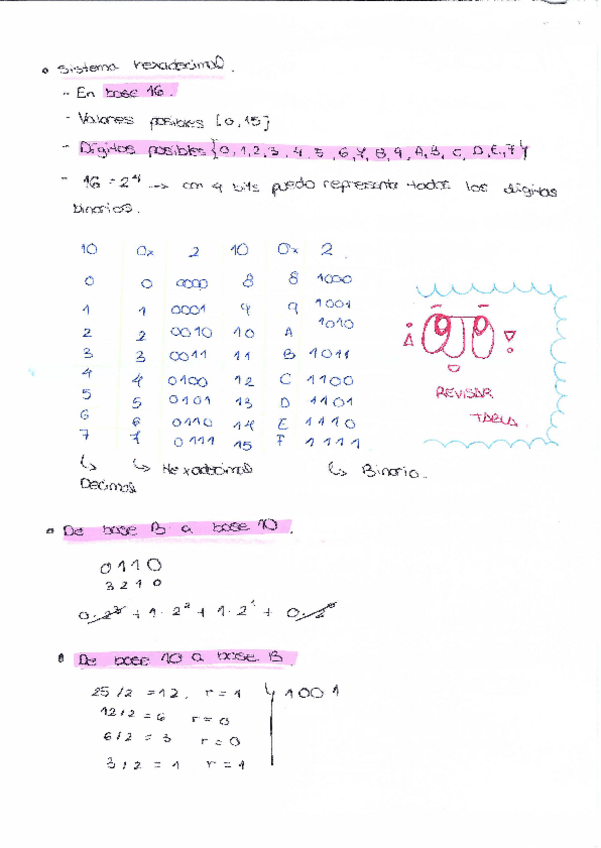 Sistema hexadecimal.
- En base 16.
- Valores posibles [0,15]
- Dígitos posibles {0,1,2,3,4,5,6,7,8,9,A,B,C,D,E,F}
- 16 = 2⁴ --> con 4 bits puedo representar todos los dígitos
binarios.
10 0x 2 10 0x 2
0 0 0000 8 8 1000
1 1 0001 9 9 1001
2 2 0010 10 A 1010
3 3 0011 11 B 1011
4 4 0100 12 C 1100
5 5 0101 13 D 1101
6 6 0110 14 E 1110
7 7 0111 15 F 1111
REVISAR
TABLA
↳ Decimal
↳ Hexadecimal
↳ Binario.
De base B a base 10.
0110
3210
0·2³ + 1·2² + 1·2¹ + 0·2⁰
De base 10 a base B.
25/2 = 12. r=1 1001
12/2 = 6 r=0
6/2 = 3 r=0
3/2 = 1 r=1